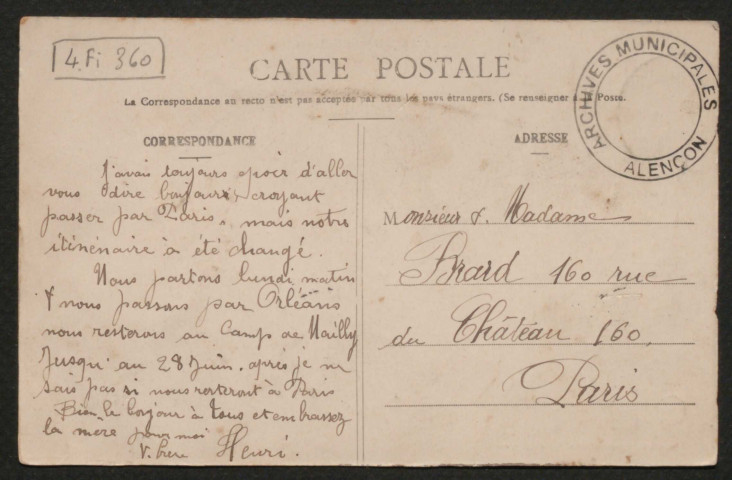 4.Fi 360
CARTE POSTALE
La Correspondance au recto n'est pas acceptée par tous les pays étrangers. (Se renseigner à la Poste.
ARCHIVES MUNICIPALES
ALENÇON
CORRESPONDANCE
J'avais toujours espoir d'aller
vous dire bonjours, croyant
passer par Paris, mais notre
itinénaire à été changé.
Nous partons lundi matin
& nous passons par Orléans
nous resterons au Camp de Mailly
Jusqu'au 28 Juin. après je ne
sais pas si nous resteront à Paris
Bien le bonjour à tous et embrassez
la mère pour moi
V. frère Henri.
ADRESSE
Monsieur & Madame
Brard 160 rue
du Château 160,
Paris